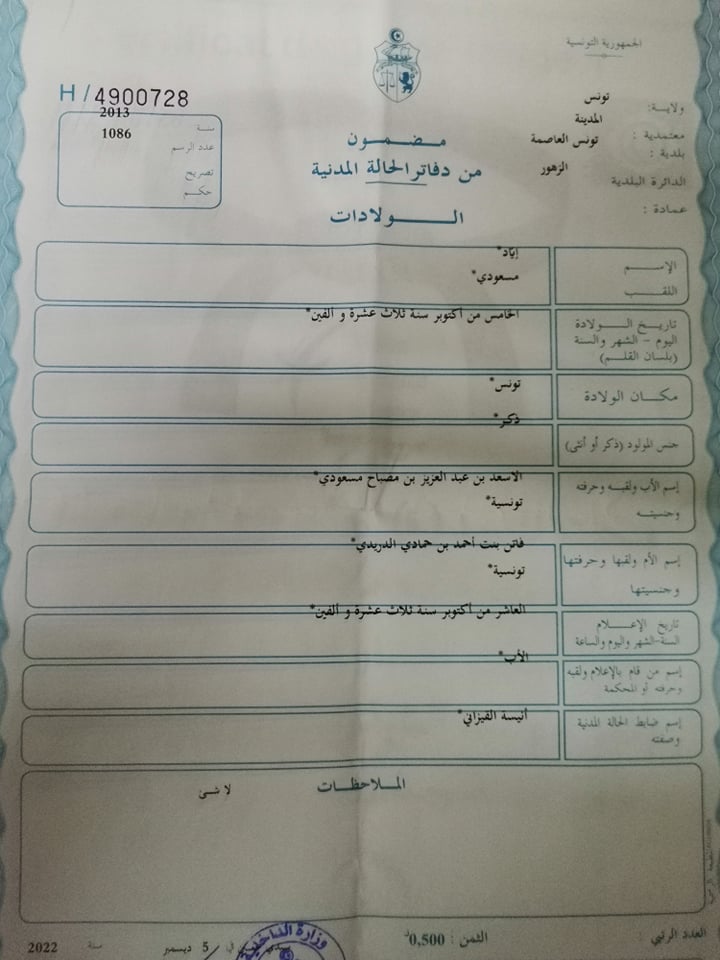 الجمهورية التونسية
H/4900728
ولاية: تونس
معتمدية : المدينة
بلدية : تونس العاصمة
الدائرة البلدية الزهور
عمادة :
سنة 2013
عدد الرسم 1086
تصريح
حكم
مضمون
من دفاتر الحالة المدنية
الولادات
الإسم إياد*
اللقب مسعودي*
تاريخ الولادة الخامس من أكتوبر سنة ثلاث عشرة و ألفين*
اليوم - الشهر والسنة
(بلسان القلم)
مكان الولادة تونس*
جنس المولود (ذكر أو أنثى) ذكر*
إسم الأب ولقبه وحرفته الاسعد بن عبد العزيز بن مصباح مسعودي*
وجنسيته تونسية*
إسم الأم ولقبها وحرفتها فاتن بنت أحمد بن حمادي الدريدي*
وجنسيتها تونسية*
تاريخ الإعلام العاشر من أكتوبر سنة ثلاث عشرة و ألفين*
السنة-الشهر واليوم والساعة
إسم من قام بالإعلام ولقبه الأب*
وحرفته أو المحكمة
إسم ضابط الحالة المدنية أنيسة الفيزاني*
وصفته
الملاحظات
لا شئ
العدد الرتبي :
الثمن : 0,500د
في / 5 ديسمبر سنة 2022
وزارة الداخلية